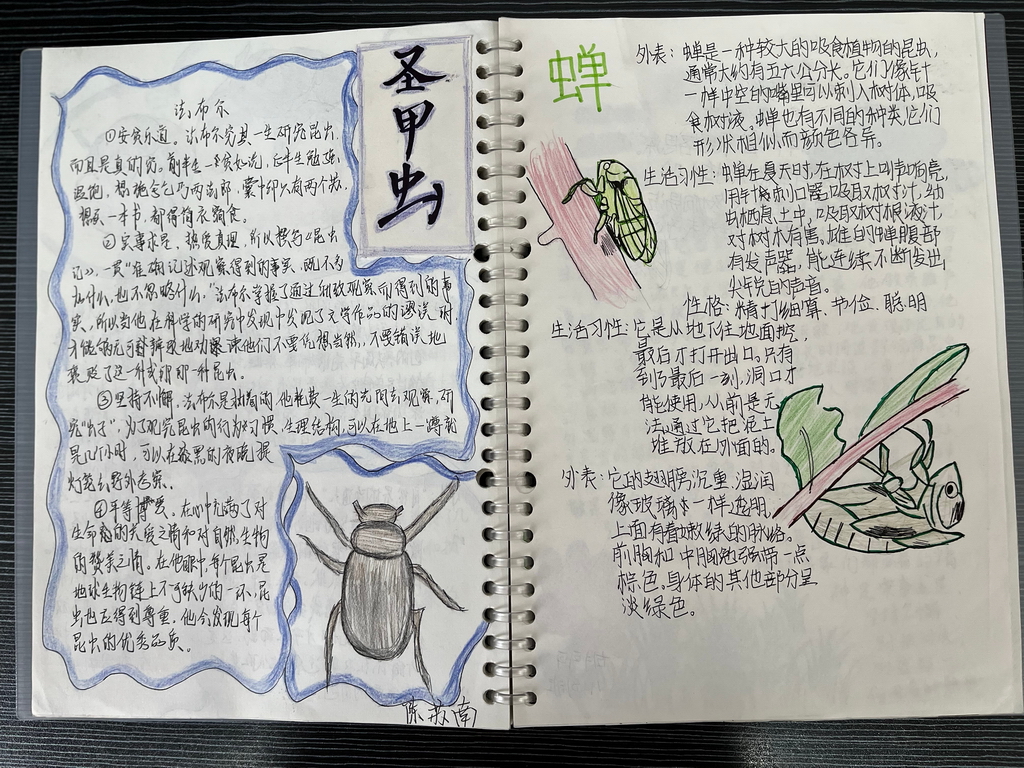 圣甲虫
法布尔
①安贫乐道。法布尔穷其一生研究昆虫,
而且是真的穷。前半生一贫如洗,后半生勉强
温饱,
一本书,都得节衣缩食。
②实事求是,热爱真理,所以撰写《昆虫
记》,一贯“准确记述观察得到的事实,既不多
加什么,也不忽略什么。”法布尔掌握了通过细致观察而得到的事
实,所以当他在科学的研究中发现中发现了文学作品的谬误时,
才能够无可辩驳地劝诫他们不要凭想当然,不要错误地
褒贬了这一种或那一种昆虫。
③坚持不懈。法布尔是执着的,他花费一生的光阴去观察、研
究“虫子”,为了观察昆虫的行为习惯、生理结构,可以在地上一蹲就
是几个小时,可以在漆黑的夜晚提
灯笼去野外考察。
④平等博爱。在心中充满了对
生命的关爱之情和对自然生物
的赞美之情。在他眼中,每个昆虫是
地球生物链上不可缺少的一环,昆
虫也应得到尊重,他会发现每个
昆虫的优秀品质。
蝉
外表:蝉是一种较大的吸食植物的昆虫,
通常大约有五六公分长。它们像针
一样中空的嘴里可以刺入树体,吸
食树液。蝉也有不同的种类,它们
形状相似而颜色各异。
生活习性:蝉在夏天时,在树上叫声响亮,
用针刺口器吸取树汁,幼
虫栖息土中,吸取树根液汁,
对树木有害。雄的蝉腹部
有发声器,能连续不断发出
尖锐的声音。
性格:精打细算、节俭、聪明
生活习性:它是从地下往地面挖,
最后才打开出口。只有
到了最后一刻,洞口才
能使用,从前是无
法通过它把泥土
堆放在外面的。
外表:它的翅膀沉重、湿润
像玻璃一样透明,
上面有着嫩绿的脉络。
前胸和中胸勉强带一点
棕色,身体的其他部分呈
淡绿色。